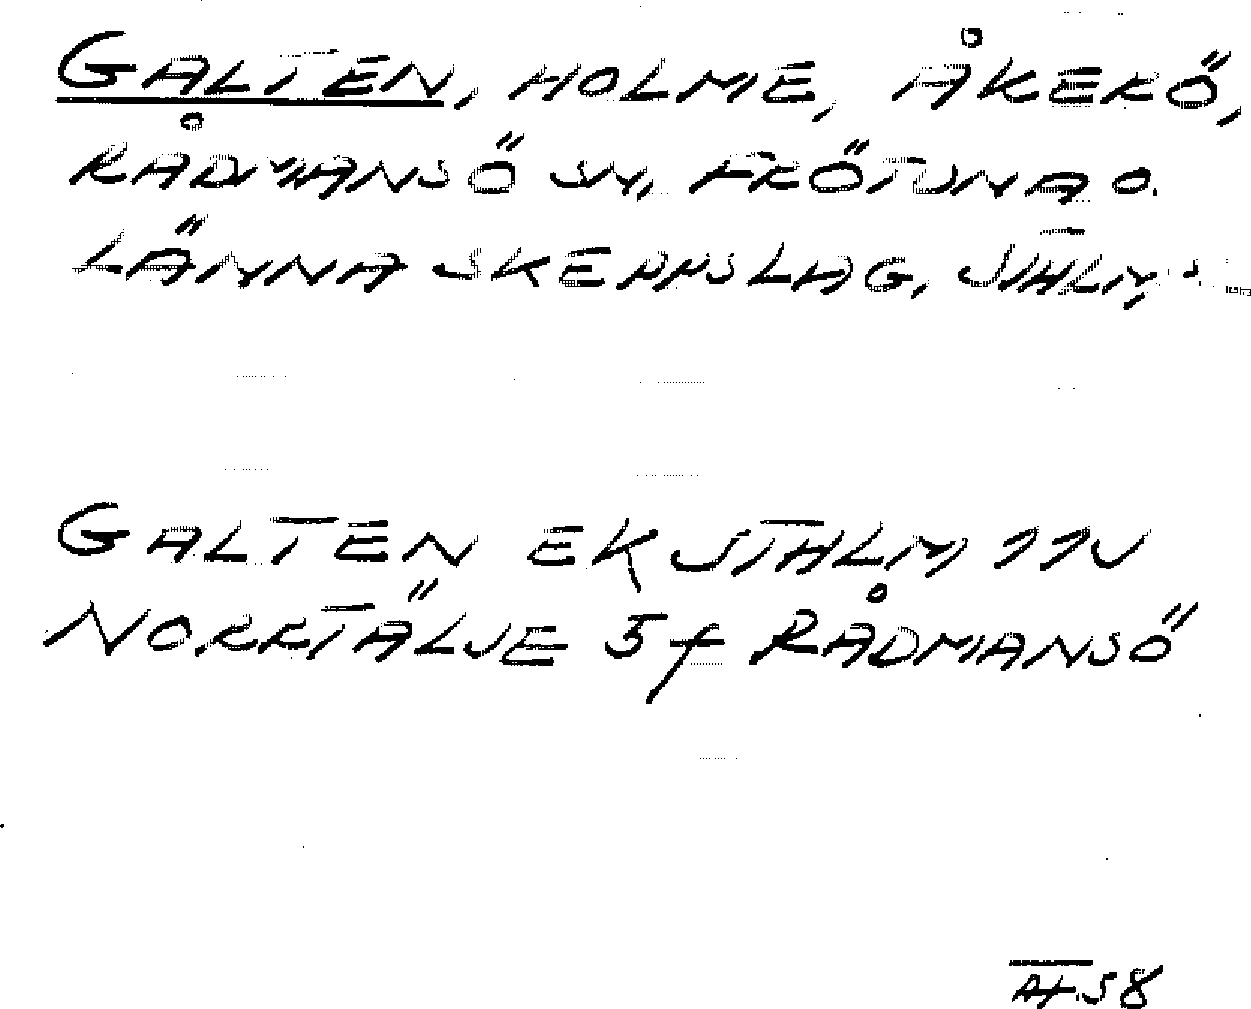 GALTEN, HOLME, ÅKERÖ,
RÅDMANSÖ SN, FRÖTUNA O.
LÄNNA SKEPPSLAG, STHLM
GALTEN EK STHLM 11V
NORRTÄLJE 5f RÅDMANSÖ
58